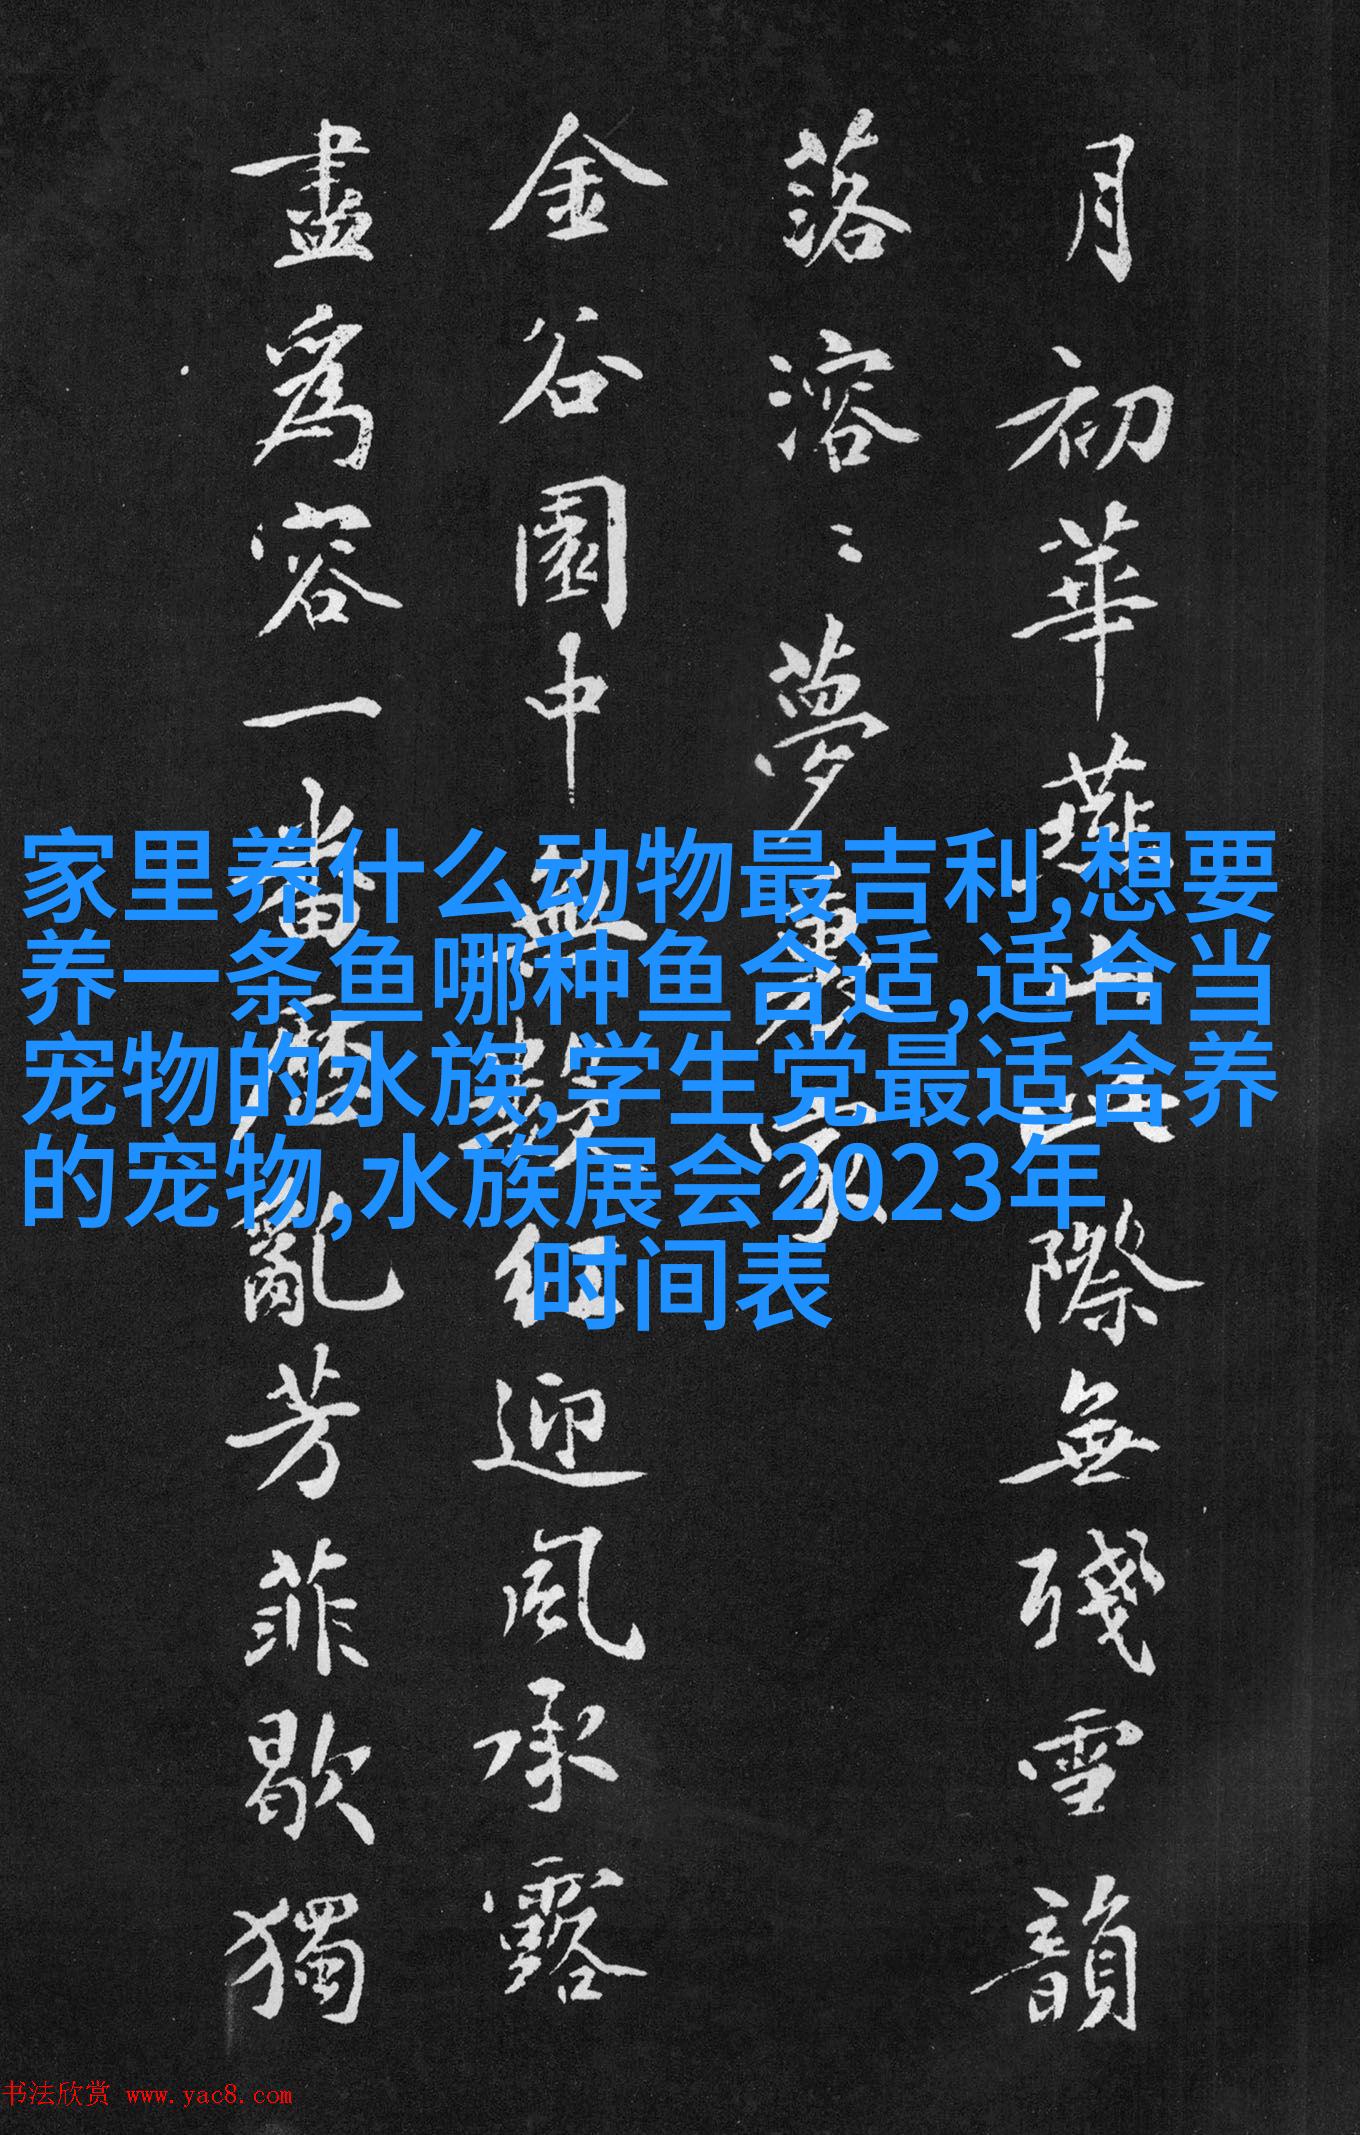 家里养什么动物最吉利,想要
养一条鱼哪种鱼合适,适合当
宠物的水族,学生党最适合养
的宠物,水族展会2023年
时间表
月初華燕山此際無殘雪韻
落溶〻夢
金谷園中無數紅迎風承露
盡為容一番亂芳菲歇獨
书法欣赏 www.yac8.com